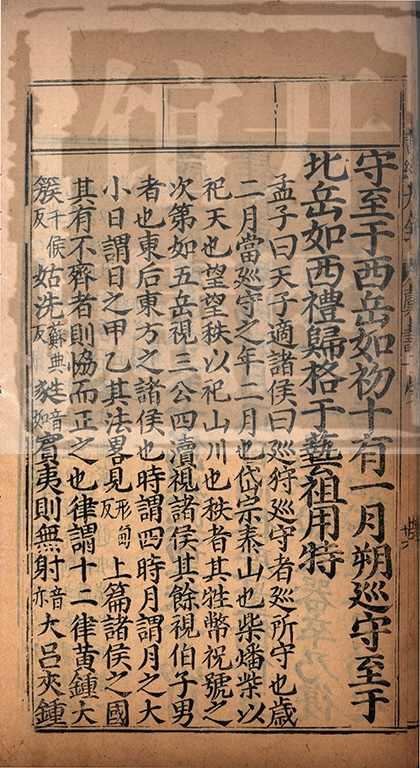 守至于西岳如初十有一月朔巡守至于
北岳如西禮歸格于藝祖用特
孟子曰天子適諸侯曰巡狩巡守者巡所守也歲
二月當巡守之年二月也岱宗泰山也柴燔柴以
祀天也望望秩以祀山川也秩者其牲幣祝號之
次第如五岳視三公四瀆視諸侯其餘視伯子男
者也東后東方之諸侯也時謂四時月謂月之大
小日謂日之甲乙其法畧見形甸反上篇諸侯之國
其有不齊者則協而正之也律謂十二律黃鍾大
簇千候反姑洗蘇典反蕤如甡音賓夷則無射音亦大呂夾鍾